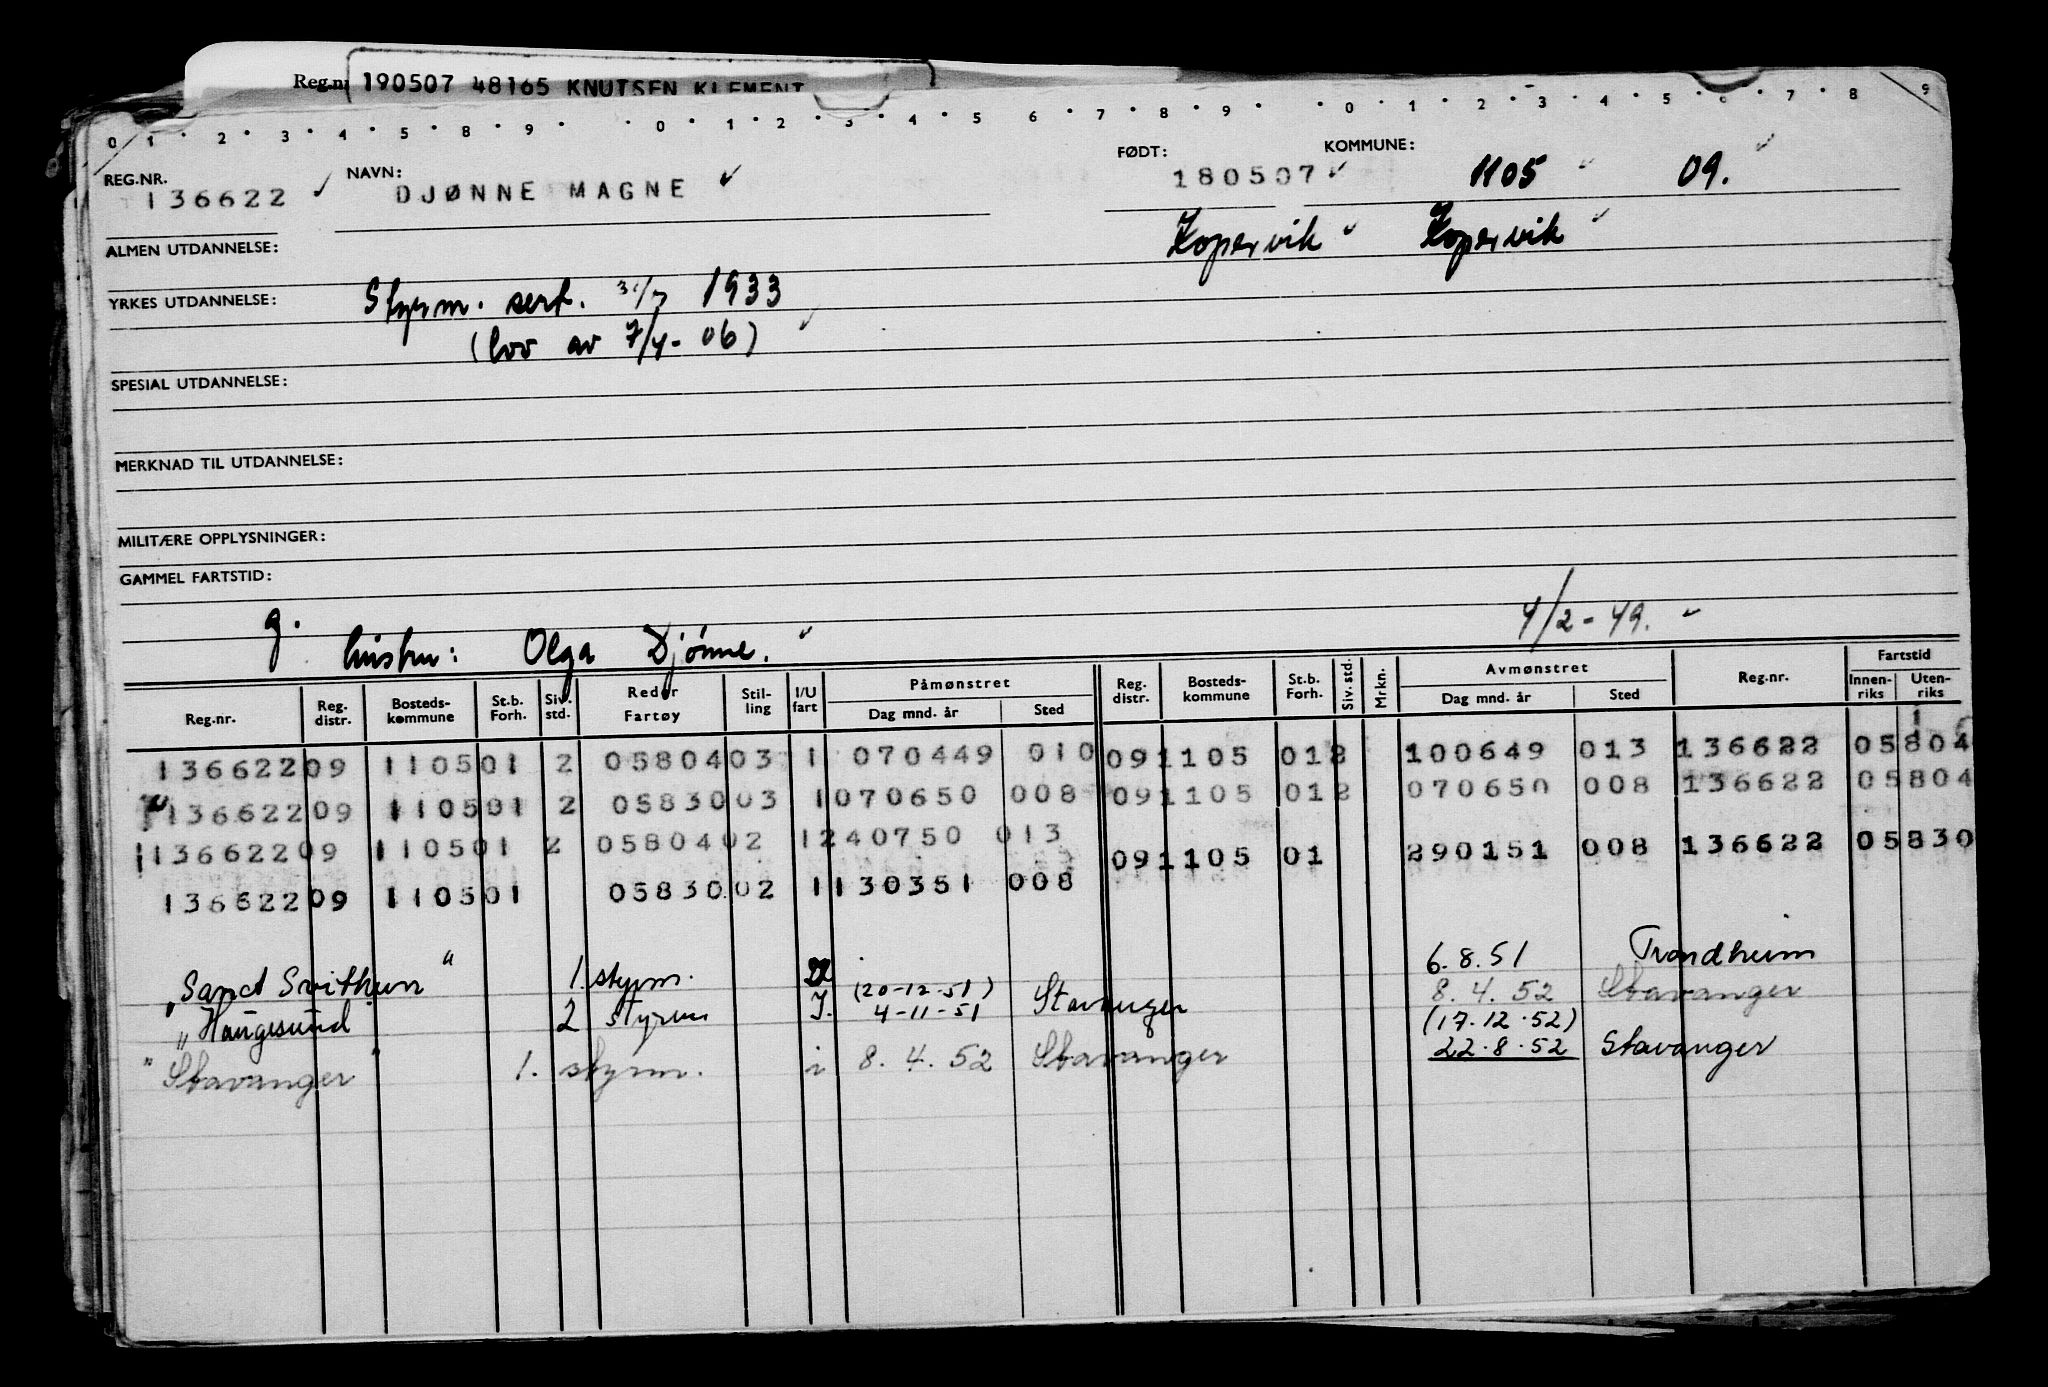 Reg.nr 190507 48165 KNUTSEN KLEMENT
0 1 2 3 4 5 8 9 0 1 2 3 4 5 6 7 8 9 0 1 2 3 4 5 6 7 8 9
REG.NR. NAVN: FØDT: KOMMUNE:
136622 DJØNNE MAGNE 180507 1105 09.
ALMEN UTDANNELSE: Kopervik Kopervik
YRKES UTDANNELSE: Styrm. sert. 31/7 1933
(lov av 7/4-06)
SPESIAL UTDANNELSE:
MERKNAD TIL UTDANNELSE:
MILITÆRE OPPLYSNINGER:
GAMMEL FARTSTID:
g. 4/2-49.
hustru: Olga Djønne.
Reg.nr. Reg. distr. Bosteds-kommune St.b. Forh. Siv. std. Reder Fartøy Stil-ling I/U fart Påmønstret Dag mnd. år Sted Reg. distr. Bosteds-kommune St.b. Forh. Siv. std. Mrkn. Avmønstret Dag mnd. år Sted Reg.nr. Fartstid Innen-riks Uten-riks
136622 09 1105 01 2 05804 03 1 070449 010 09 1105 01 2 100649 013 136622 05804
136622 09 1105 01 2 05830 03 1 070650 008 09 1105 01 2 070650 008 136622 05804
136622 09 1105 01 2 05804 02 1 240750 013 09 1105 01 290151 008 136622 05830
136622 09 1105 01 05830 02 1 130351 008
6.8.51 Trondheim
"Sanct Svithun" 1. styrm. (20-12-51) 8.4.52 Stavanger
"Haugesund 2 styrm I. 4-11-51 Stavanger (17.12.52)
"Stavanger" 1. styrm. i 8.4.52 Stavanger 22.8.52 Stavanger